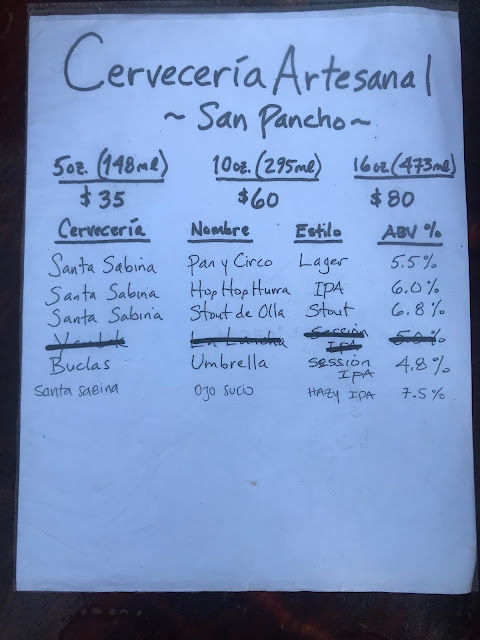 Cervecería Artesanal
~ San Pancho ~
5oz. (148ml) 10oz. (295ml) 16oz (473ml)
$35 $60 $80
Cervecería Nombre Estilo ABV %
Santa Sabina Pan y Circo Lager 5.5%
Santa Sabina Hop Hop Hurra IPA 6.0%
Santa Sabina Stout de Olla Stout 6.8%
Session IPA 5.0%
Buclas Umbrella Session IPA 4.8%
Santa Sabina Ojo Sucio HAZY IPA 7.5%